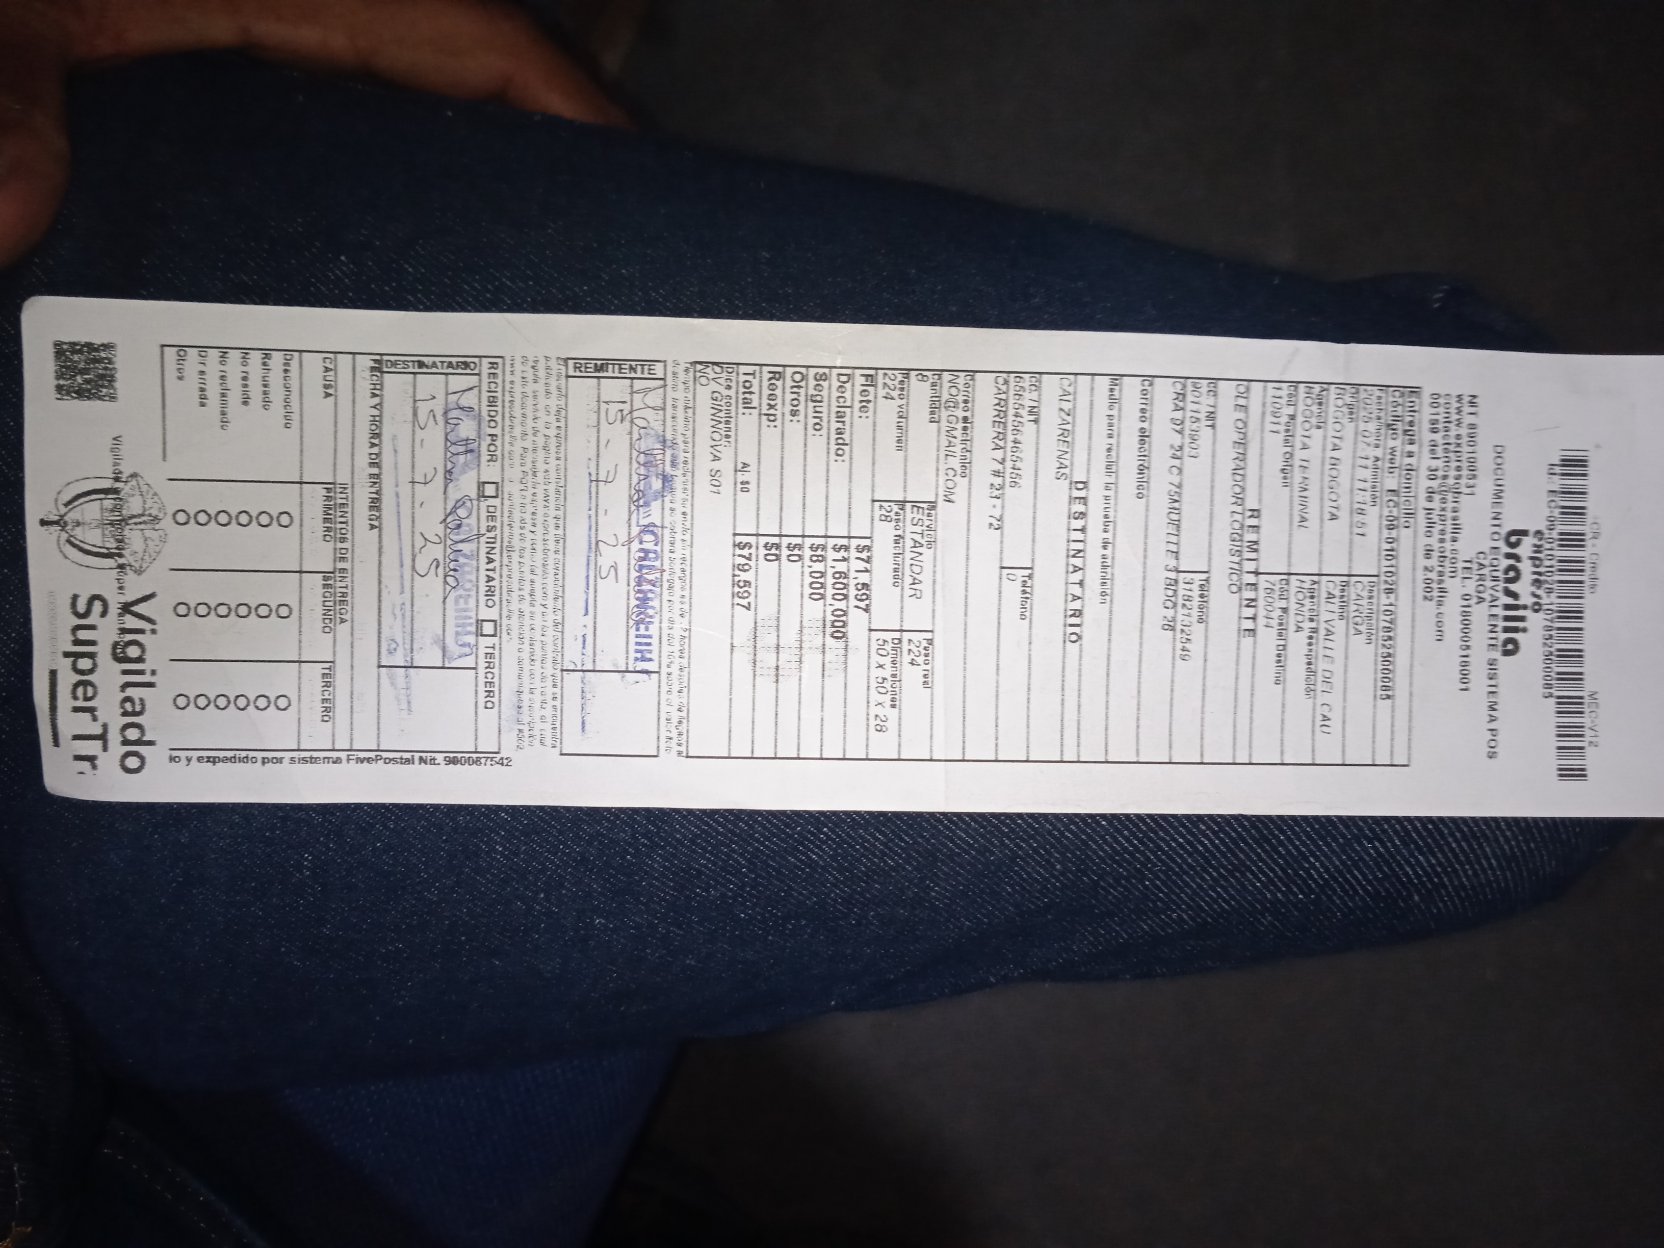 CR - Credito MEC-V12
Id.: EC-09-0101028-107852500085
expreso
brasilia
DOCUMENTO EQUIVALENTE SISTEMA POS
CARGA
NIT 890100531 TEL. 018000516001
www.expresobrasilia.com
contactenos@expresobrasilia.com
00159 del 30 de julio de 2.002
Entrega a domicilio
Código web: EC-09-0101028-107852500085
Fecha/hora Admisión Descripción
2025-07-11 11:18:51 CARGA
Origen Destino
BOGOTA BOGOTA CALI VALLE DEL CAU
Agencia Agencia Reexpedición
BOGOTA TERMINAL HONDA
Cód. Postal Origen Cód. Postal Destino
110911 760044
REMITENTE
OLE OPERADOR LOGISTICO
CC. / NIT Teléfono
901153903 3182132549
CRA 97 24 C 75MUELLE 3 BDG 26
Correo electrónico
Medio para recibir la prueba de admisión
DESTINATARIO
CALZARENAS
CC. / NIT Teléfono
6665456465456 0
CARRERA 7 # 23 - 72
Correo electrónico
NO@GMAIL.COM
Cantidad Servicio Peso real
8 ESTANDAR 224
Peso volumen Peso facturado Dimensiones
224 28 50 X 50 X 28
Flete: $71,597
Declarado: $1,600,000
Seguro: $8,000
Otros: $0
Reexp: $0
Total: Aj. $0 $79,597
Dice contener:
DV GINNOVA S01
NO
REMITENTE
15-7-25
RECIBIDO POR: DESTINATARIO TERCERO
DESTINATARIO
15-7-25
FECHA Y HORA DE ENTREGA
INTENTOS DE ENTREGA
CAUSA PRIMERO SEGUNDO TERCERO
Desconocido
Rehusado
No reside
No reclamado
Dir errada
Otros
io y expedido por sistema FivePostal Nit. 900087542
Vigilado
SuperTr